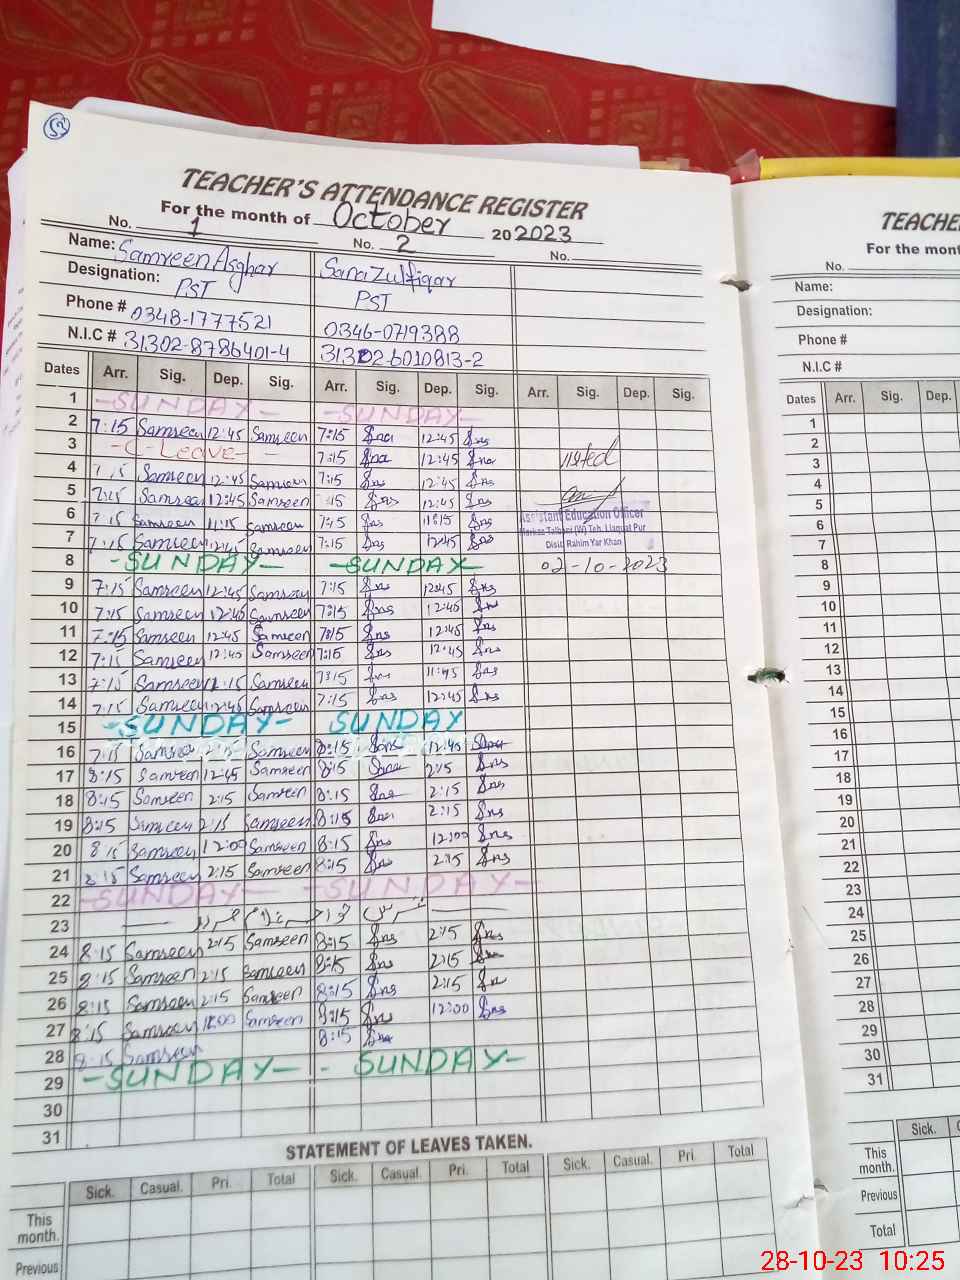 52
TEACHER'S ATTENDANCE REGISTER
For the month of October 2023
No. 1 No. 2 No.
Name: Samreen Asghar Sana Zulfiqar
Designation: PST PST
Phone # 0348-1777521 0346-0719388
N.I.C # 31302-8786401-4 31302-6010813-2
Dates Arr. Sig. Dep. Sig. Arr. Sig. Dep. Sig. Arr. Sig. Dep. Sig.
1 -SUNDAY- -SUNDAY-
2 7:15 Samreen 12:45 Samreen 7:15 Sna 12:45 Sns
3 -C-Leave- 7:15 Sna 12:45 Sna visited
4 7:15 Samreen 12:45 Samreen 7:15 Sns 12:45 Sns
5 7:15 Samreen 12:45 Samreen 7:15 Sns 12:45 Sns
Assistant Education Officer
6 7:15 Samreen 11:15 Samreen 7:15 Sns 11:15 Sns
Markaz Talbani (W) Teh. Liaquat Pur
7 7:15 Samreen 12:45 Samreen 7:15 Sns 12:45 Sns
Distt. Rahim Yar Khan
8 -SUNDAY- -SUNDAY- 02-10-2023
9 7:15 Samreen 12:45 Samreen 7:15 Sns 12:45 Sns
10 7:15 Samreen 12:45 Samreen 7:15 Sns 12:45 Sns
11 7:15 Samreen 12:45 Samreen 7:15 Sns 12:45 Sns
12 7:15 Samreen 12:45 Samreen 7:15 Sns 12:45 Sns
13 7:15 Samreen 11:15 Samreen 7:15 Sns 11:45 Sns
14 7:15 Samreen 12:45 Samreen 7:15 Sns 12:45 Sns
15 -SUNDAY- SUNDAY
16 7:15 Samreen 2:15 Samreen 8:15 Sns 12:45 Sns
17 8:15 Samreen 12:45 Samreen 8:15 Sns 2:15 Sns
18 8:15 Samreen 2:15 Samreen 8:15 Sns 2:15 Sns
19 8:15 Samreen 2:15 Samreen 8:15 Sns 2:15 Sns
20 8:15 Samreen 12:00 Samreen 8:15 Sns 12:00 Sns
21 8:15 Samreen 2:15 Samreen 8:15 Sns 2:15 Sns
22 -SUNDAY- -SUNDAY-
23 عرس خواجہ غلام فرید
24 8:15 Samreen 2:15 Samreen 8:15 Sns 2:15 Sns
25 8:15 Samreen 2:15 Samreen 8:15 Sns 2:15 Sns
26 8:15 Samreen 2:15 Samreen 8:15 Sns 2:15 Sns
27 8:15 Samreen 12:00 Samreen 8:15 Sns 12:00 Sns
28 8:15 Samreen 8:15 Sns
29 -SUNDAY- - SUNDAY-
30
31
STATEMENT OF LEAVES TAKEN.
Sick. Casual. Pri. Total Sick. Casual. Pri. Total Sick. Casual. Pri. Total
This month.
Previous
TEACHE
For the mont
No.
Name:
Designation:
Phone #
N.I.C #
Dates Arr. Sig. Dep.
1
2
3
4
5
6
7
8
9
10
11
12
13
14
15
16
17
18
19
20
21
22
23
24
25
26
27
28
29
30
31
Sick. C
This month.
Previous
Total
28-10-23 10:25